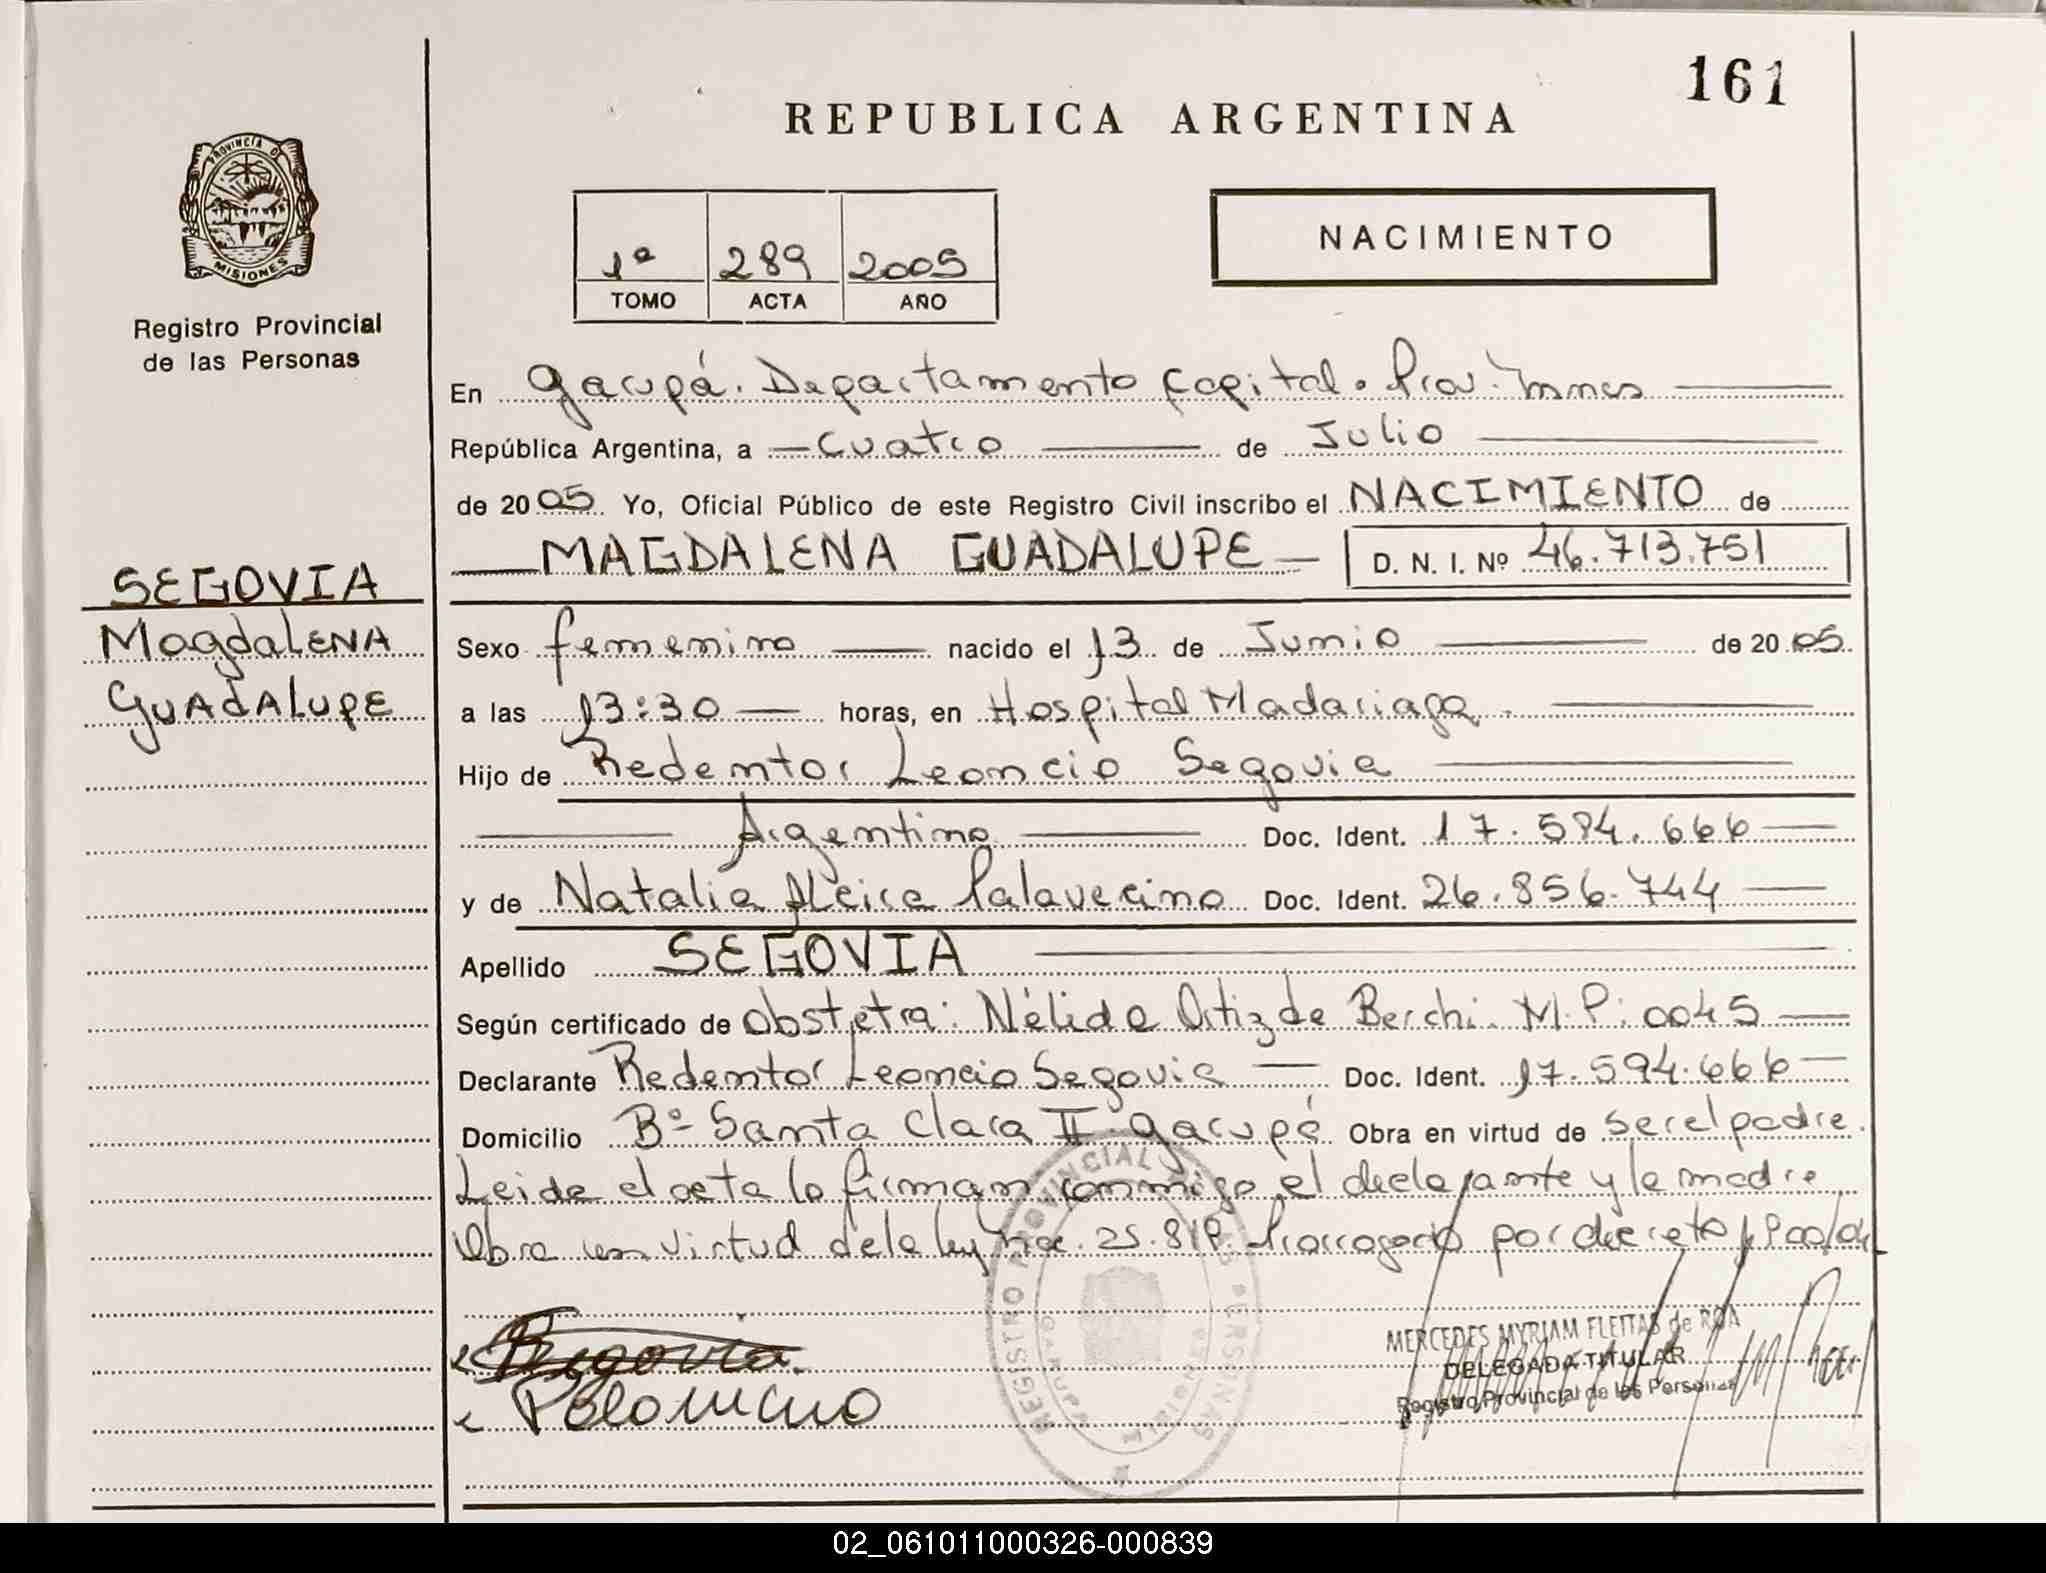 161
REPUBLICA ARGENTINA
PROVINCIA DE
MISIONES
Registro Provincial
de las Personas
1º 289 2005
TOMO ACTA AÑO
NACIMIENTO
En Garupá. Departamento Capital. Prov.
República Argentina, a cuatro de Julio
de 2005. Yo, Oficial Público de este Registro Civil inscribo el NACIMIENTO de
MAGDALENA GUADALUPE D. N. I. Nº 46.713.751
SEGOVIA
MagdaLENA
GUAdALupE
Sexo femenino nacido el 13 de Junio de 2005.
a las 13:30 horas, en Hospital Madariaga.
Hijo de Redentor Leoncio Segovia
Argentino Doc. Ident. 17.594.666
y de Natalia Palavecino Doc. Ident. 26.856.744
Apellido SEGOVIA
Según certificado de obstetra: Nélida Ortiz de Berchi. M.P: 0045
Declarante Redentor Leoncio Segovia Doc. Ident. 17.594.666
Domicilio Bº Santa Clara II. Garupá Obra en virtud de ser el padre.
Leida el acta la firman conmigo el declarante y la madre
Obra en virtud de la ley 25.819. Prorrogado por decreto
REGISTRO PROVINCIAL DE LAS PERSONAS
Segovia
MERCEDES MYRIAM FLEITAS de ROA
DELEGADA TITULAR
Registro Provincial de las Personas
02_061011000326-000839